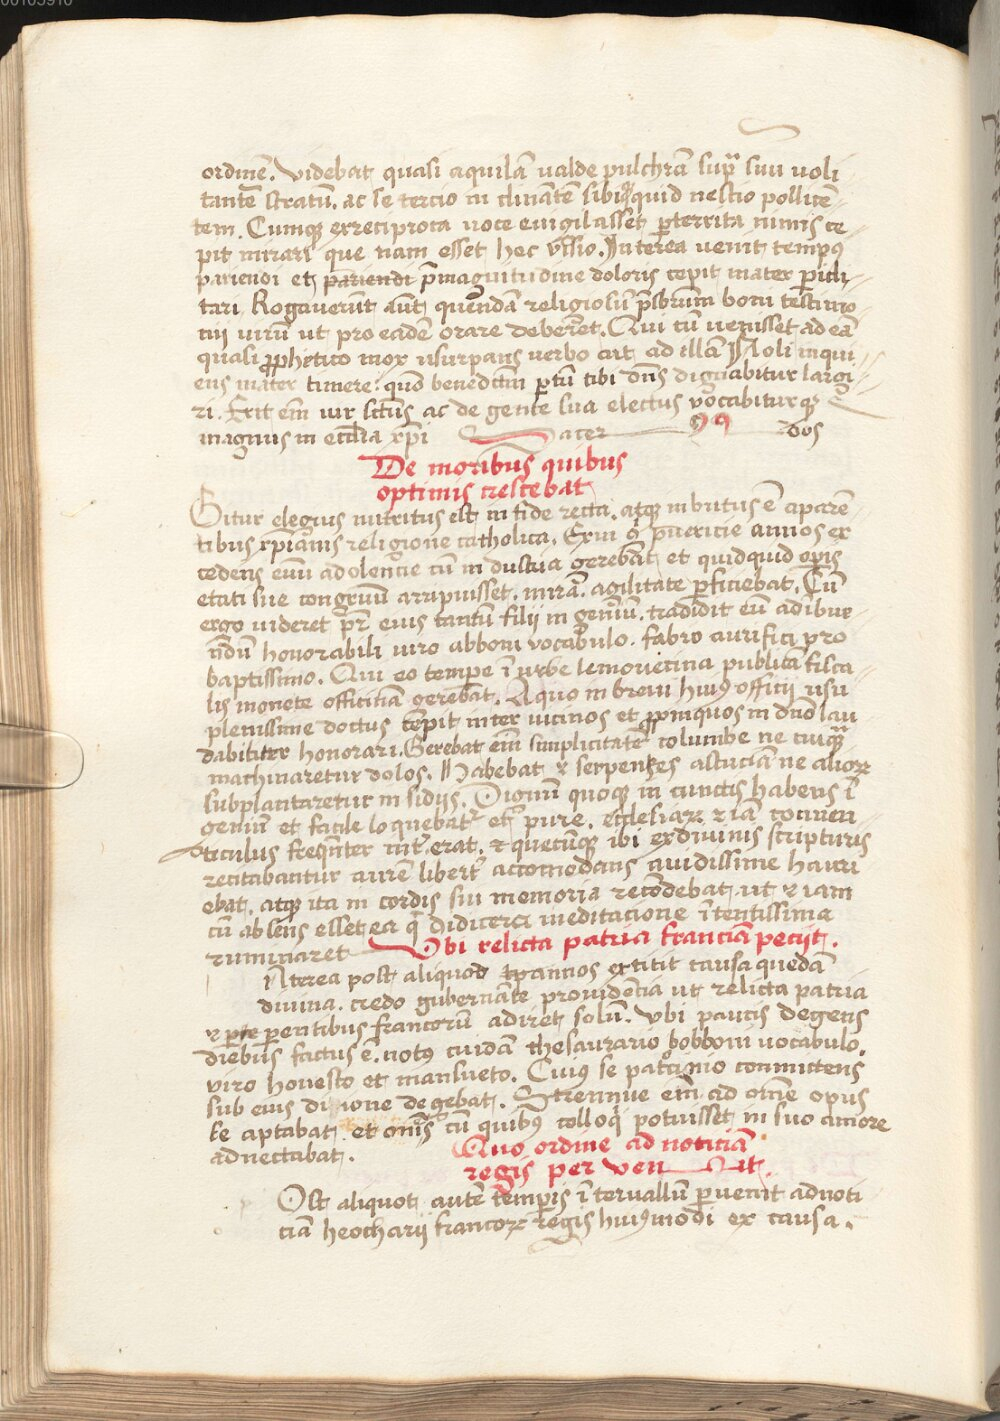 00103910
ordinē. Videbat quasi aquilā ualde pulchrā supra suū uoli
tantē stratū. ac se tercio in clinātē sibiqȝ quid nescio pollicē
tem. Cumqȝ exreciproca uoce euigilasset perterrita nimis ce
pit mirari que nam esset hec visio. Interea uenit tempus
pariendi et pariendi pre magnitudine doloris cepit mater pericli
tari. Rogauerūt autē quendā religiosū presbiterum boni testimo
nii virū ut pro eadē orare deberet. Qui cū uenisset ad eā
quasi prophetico mox usurpans uerbo ait ad illā Noli inqui
ens mater timere: quō benedictū partū tibi dn̄s dignabitur largi
ri. Erit em̄ uir sctūs ac de gente sua electus vocabiturqȝ
magnus in eccl̄ia xp̄i Sacer dos
De moribus quibus
optimis crescebat
Gitur elegius nutritus est in fide recta. atqȝ inbutus ē aparē
tibus xp̄ianis religione catholica. Exin qͦ puericie annos ex
cedens euū adolencie cū in dustria gerebat et quidquid operis
etati sue congruū arripuisset. mirā. agilitate perficiebat. Cū
ergo uideret pr̄ eius tantū filij in geniū. tradidit eū adinbue
ndū honorabili uiro abboni vocabulo. fabro aurifici pro
baptissimo. Qui eo tempe ī urbe lemouecina publicā fisca
lis monete officinā gerebat. A quo in breui huiꝰ officii usu
plenissime doctus cepit inter uicinos et propinquos in dn̄o lau
dabiliter honorari. Gerebat em̄ simplicitatē columbe ne cuiqȝ
machinaretur dolos. Habebat et serpentes astuciā ne alioꝝ
subplantaretur in sidijs. Dignū quoqȝ in cunctis habens ī
geniū et facile loquebatr̄ et pure. ecclesiaꝝ et iā conuen
ticulus freqn̄ter intˀerat. et quecūqȝ ibi exdiuinis scripturis
recitabantur aurē libert̄ accomodans auidissime hauri
ebat. atqȝ ita in cordis sui memoria recōdebat ut et iam
cū absens esset ea q̄ didicerat meditacione ītentissima
ruminaret Vbi relicta patria franciā peciit.
Nterea post aliquod annos extitit causa quedā
diuina. credo gubernāte prouidēcia ut relicta patria
et parentibus francorū adiret solū. Vbi paucis degens
diebus factus ē. notꝰ cuidā thesaurario bobboni uocabulo.
viro honesto et mansueto. Cuiꝰ se patrocinio committens
sub eius dicione degebat. Strennue em̄ ad om̄e opus
se aptabat. et om̄s cū quibꝰ colloqi potuisset in suo amore
adnectabat.
Quo ordine ad noticiā
regis per ven it.
Ost aliquot autē temporis ī teruallū peruenit adnoti
ciā heocharij francoꝝ regis huiꝰmodi ex causa.